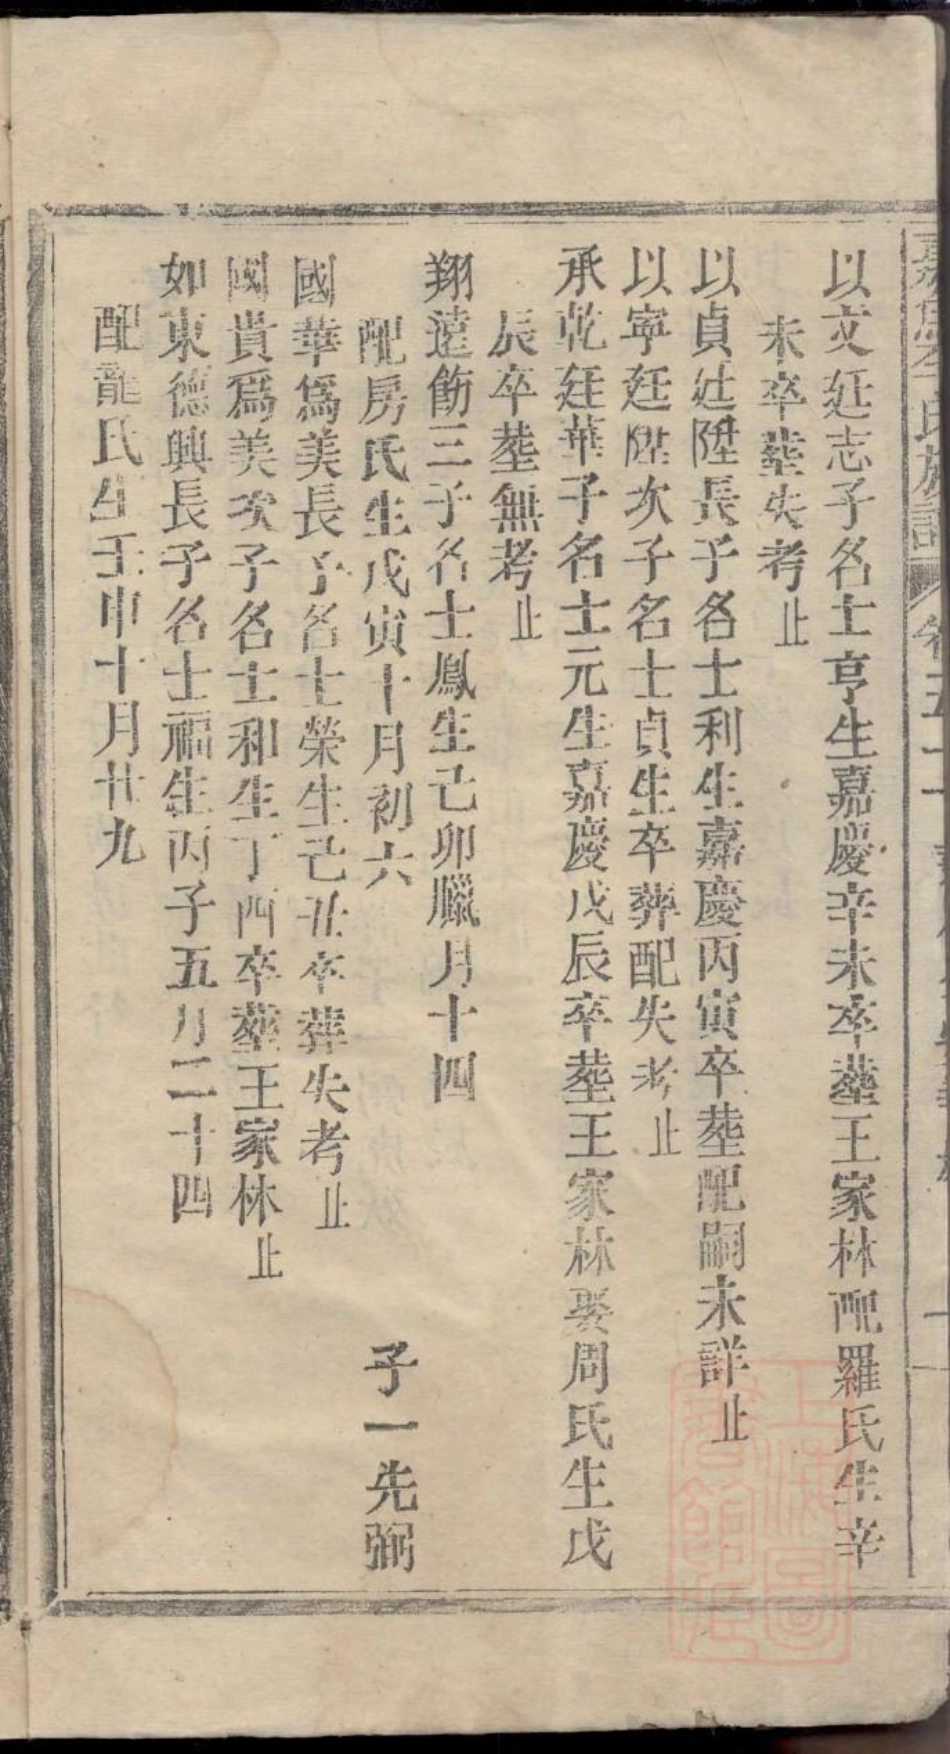 以文廷志子名士亨生嘉慶辛未卒塟王家林配羅氏生辛
未卒塟失考止
以貞廷陞長子名士利生嘉慶丙寅卒塟配嗣未詳止
以寧廷陞次子名士貞生卒葬配失考止
承乾廷華子名士元生嘉慶戊辰卒塟王家林娶周氏生戊
辰卒塟無考止
翔遠飭三子名士鳳生己卯臘月十四
配房氏生戊寅十月初六 子一先弼
國華爲美長子名士榮生己丑卒葬失考止
國貴爲美次子名士和生丁酉卒塟王家林止
如東德興長子名士福生丙子五月二十四
配龍氏生壬申十月廿九